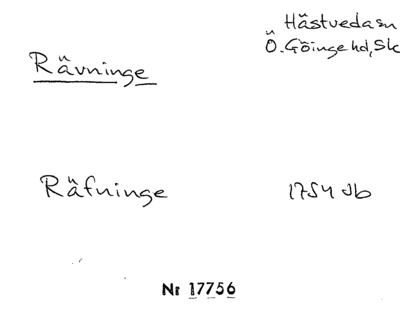 Hästveda sn
Rävninge
Ö. Göinge hd, Sk
Räfninge 1754 Jb
Nr 17756